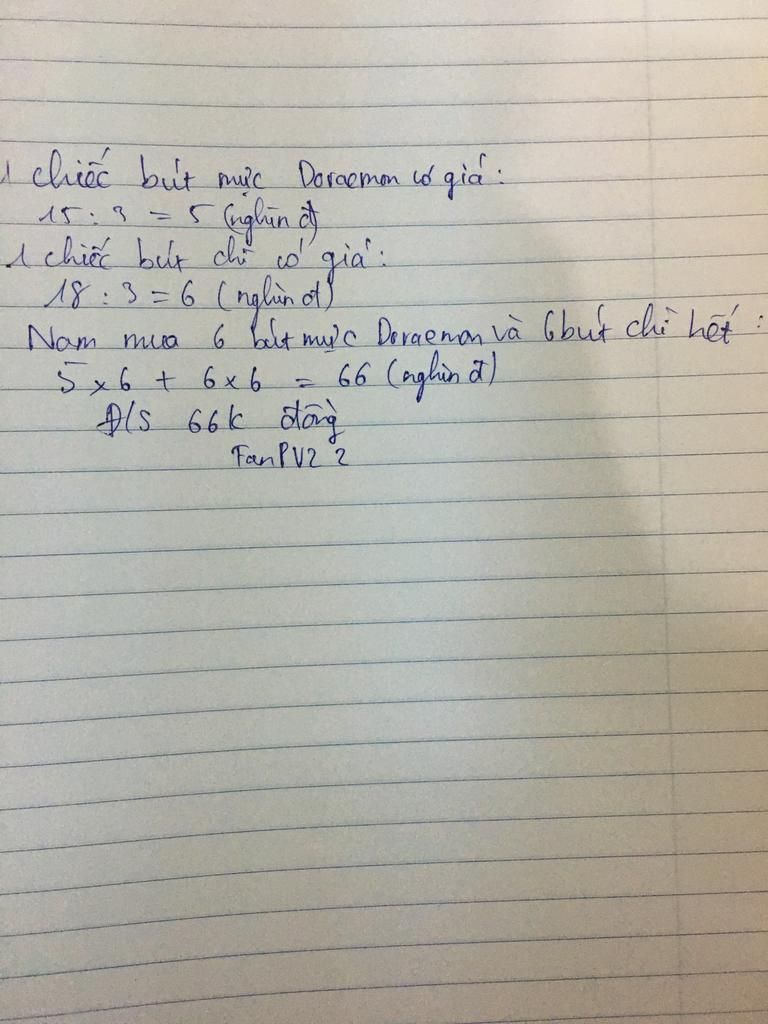 1 chiếc bút mực Doraemon có giá:
15 : 3 = 5 (nghìn đ)
1 chiếc bút chì có giá:
18 : 3 = 6 (nghìn đ)
Nam mua 6 bút mực Doraemon và 6 bút chì hết:
5 x 6 + 6 x 6 = 66 (nghìn đ)
Đ/S 66k đồng
FanPV2 2